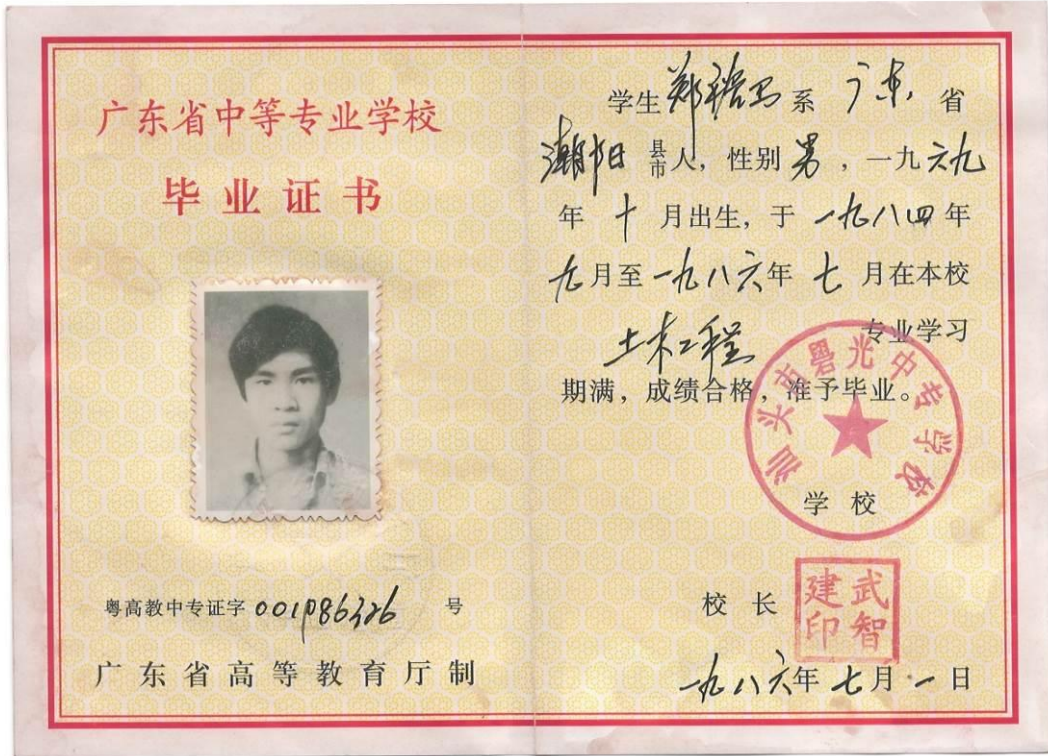 广东省中等专业学校
毕业证书
粤高教中专证字 号
广东省高等教育厅制
学生郑 系广东省
潮阳县市人，性别男，一九六九
年十月出生，于一九八四年
九月至一九八六年七月在本校
土木工程专业学习
期满，成绩合格，准予毕业。
汕头市粤光中专学校
学校
校长
武智建印
一九八六年七月一日